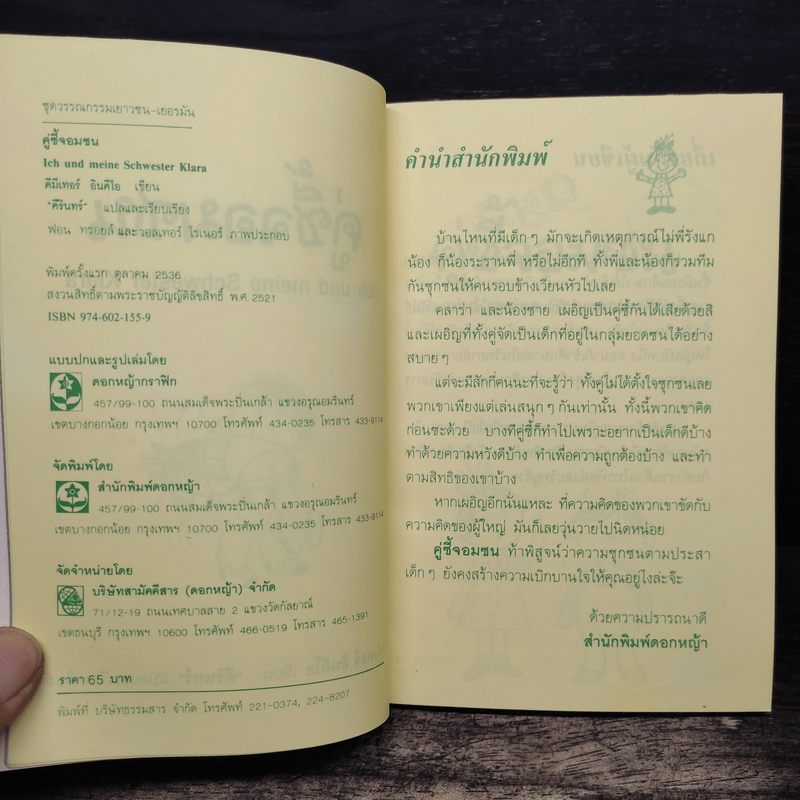 ชุดวรรณกรรมเยาวชน-เยอรมัน
คู่ซี้จอมซน
Ich und meine Schwester Klara
ดีมีเทอร์ อินคีโอ เขียน
"คีรินทร์" แปลและเรียบเรียง
ฟอน ทรอยส์ และวอลเทอร์ ไรเนอร์ ภาพประกอบ
พิมพ์ครั้งแรก ตุลาคม 2536
สงวนสิทธิ์ตามพระราชบัญญัติลิขสิทธิ์ พ.ศ. 2521
ISBN 974-602-155-9
แบบปกและรูปเล่มโดย
ดอกหญ้ากราฟิก
457/99-100 ถนนสมเด็จพระปิ่นเกล้า แขวงอรุณอมรินทร์
เขตบางกอกน้อย กรุงเทพฯ 10700 โทรศัพท์ 434-0235 โทรสาร 433-9114
จัดพิมพ์โดย
สำนักพิมพ์ดอกหญ้า
457/99-100 ถนนสมเด็จพระปิ่นเกล้า แขวงอรุณอมรินทร์
เขตบางกอกน้อย กรุงเทพฯ 10700 โทรศัพท์ 434-0235 โทรสาร 433-9114
จัดจำหน่ายโดย
บริษัทสามัคคีสาร (ดอกหญ้า) จำกัด
71/12-19 ถนนเทศบาลสาย 2 แขวงวัดกัลยาณ์
เขตธนบุรี กรุงเทพฯ 10600 โทรศัพท์ 466-0519 โทรสาร 465-1391
ราคา 65 บาท
พิมพ์ที่ บริษัทธรรมสาร จำกัด โทรศัพท์ 221-0374, 224-8207
คำนำสำนักพิมพ์
บ้านไหนที่มีเด็กๆ มักจะเกิดเหตุการณ์ไม่พี่รังแก
น้อง ก็น้องระรานพี่ หรือไม่อีกที ทั้งพี่และน้องก็รวมทีม
กันซุกซนให้คนรอบข้างเวียนหัวไปเลย
คลาร่า และน้องชาย เผอิญเป็นคู่ซี้กันได้เสียด้วยสิ
และเผอิญที่ทั้งคู่จัดเป็นเด็กที่อยู่ในกลุ่มยอดซนได้อย่าง
สบายๆ
แต่จะมีสักกี่คนนะที่จะรู้ว่า ทั้งคู่ไม่ได้ตั้งใจซุกซนเลย
พวกเขาเพียงแต่เล่นสนุกๆ กันเท่านั้น ทั้งนี้พวกเขาคิด
ก่อนซะด้วย บางทีคู่ซี้ก็ทำไปเพราะอยากเป็นเด็กดีบ้าง
ทำด้วยความหวังดีบ้าง ทำเพื่อความถูกต้องบ้าง และทำ
ตามสิทธิของเขาบ้าง
หากเผอิญอีกนั่นแหละ ที่ความคิดของพวกเขาขัดกับ
ความคิดของผู้ใหญ่ มันก็เลยวุ่นวายไปนิดหน่อย
คู่ซี้จอมซน ท้าพิสูจน์ว่าความซุกซนตามประสา
เด็กๆ ยังคงสร้างความเบิกบานใจให้คุณอยู่ไงล่ะจ๊ะ
ด้วยความปรารถนาดี
สำนักพิมพ์ดอกหญ้า